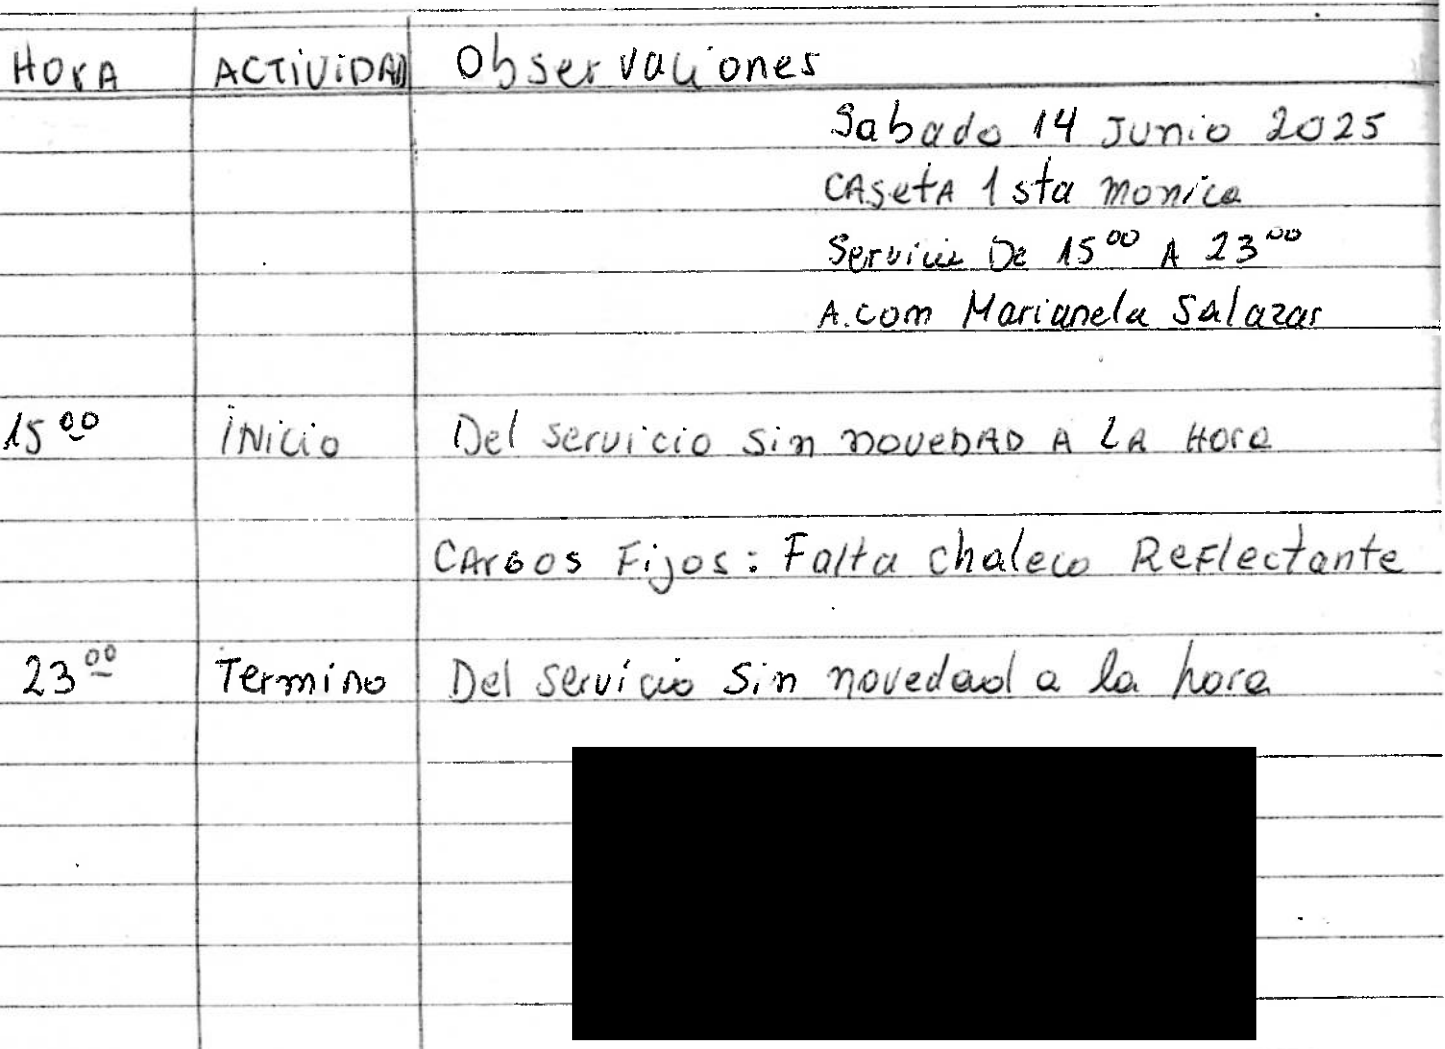 HorA ACTIVIDAD Observaciones
Sabado 14 Junio 2025
CAsetA 1 sta monica
Servicio De 15⁰⁰ A 23⁰⁰
A.com Marianela Salazar
15⁰⁰ iNicio Del servicio sin noveDAD A LA Hora
CArGos Fijos: Falta chaleco ReFlectante
23⁰⁰ Termino Del servicio Sin novedad a la hora